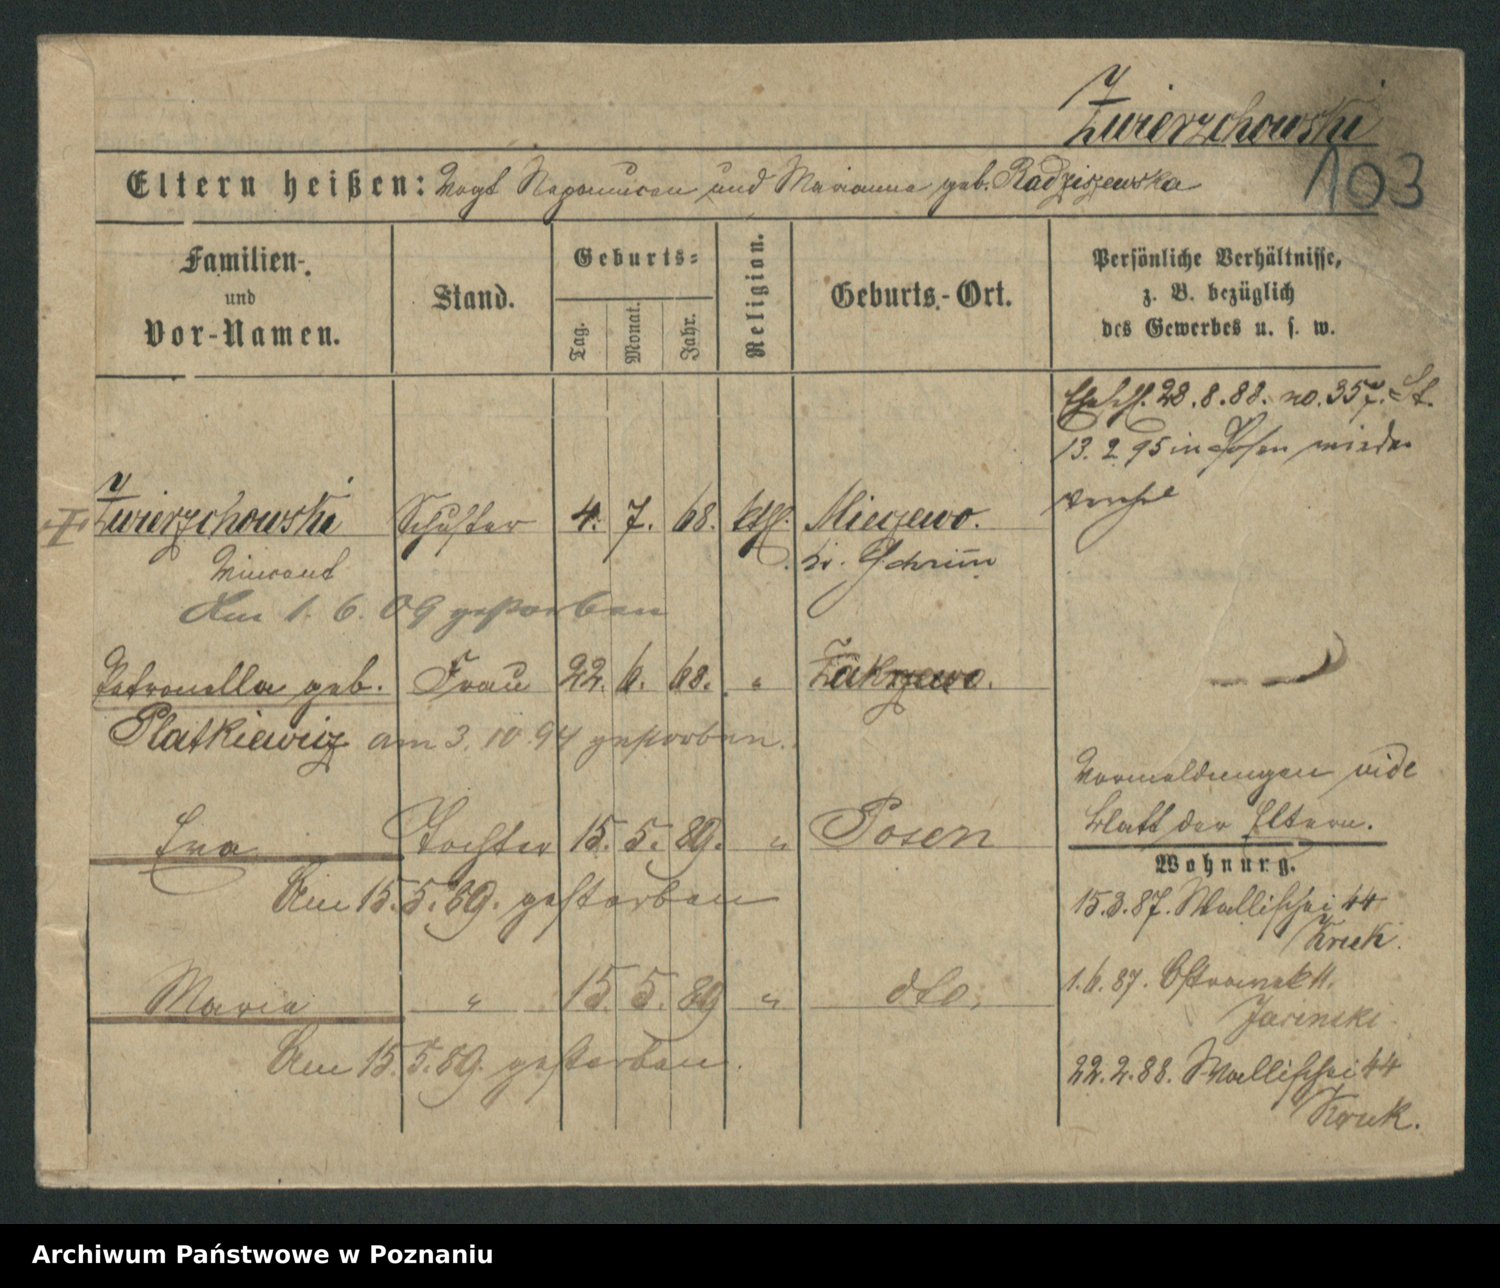 Zwierzchowski
103
Eltern heißen: Vogt Nepomucen und Marianna geb. Radziszewska
Familien- und Vor-Namen.
Stand.
Geburts-
Tag.
Monat.
Jahr.
Religion.
Geburts-Ort.
Persönliche Verhältnisse,
z. B. bezüglich
des Gewerbes u. s. w.
28.8.88. no. 357. St.
13.2.95 in Posen wieder
Zwierzchowski Schuster 4. 7. 68. kth. Mieczewo.
Vincent Kr. Schrimm
Am 1. 6. 09 gestorben
Petronella geb. Frau 22. 6. 68. " Zakrzewo.
Platkiewicz am 3. 10. 94 gestorben.
Vormeldungen vide
Blatt der Eltern.
Eva Tochter 15. 5. 89. " Posen
Am 15. 5. 89. gestorben
Wohnung.
15.3.87. Wallischei 44
Kruk.
Maria " 15. 5. 89 " dto.
Am 15. 5. 89. gestorben.
1.6.87. Ostrowek 11.
Jarinski.
22.2.88. Wallischei 44
Kruk.
Archiwum Państwowe w Poznaniu